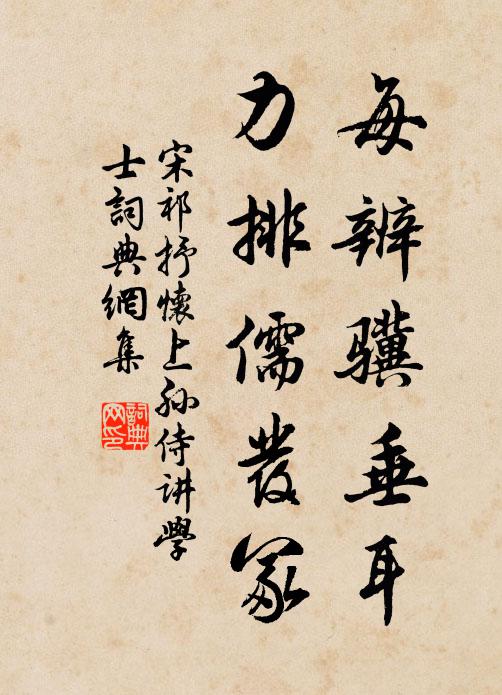 每辨驥垂耳
力排儒發冢
宋祁抒懷上孙侍讲學
士詞典網集
詞典网印